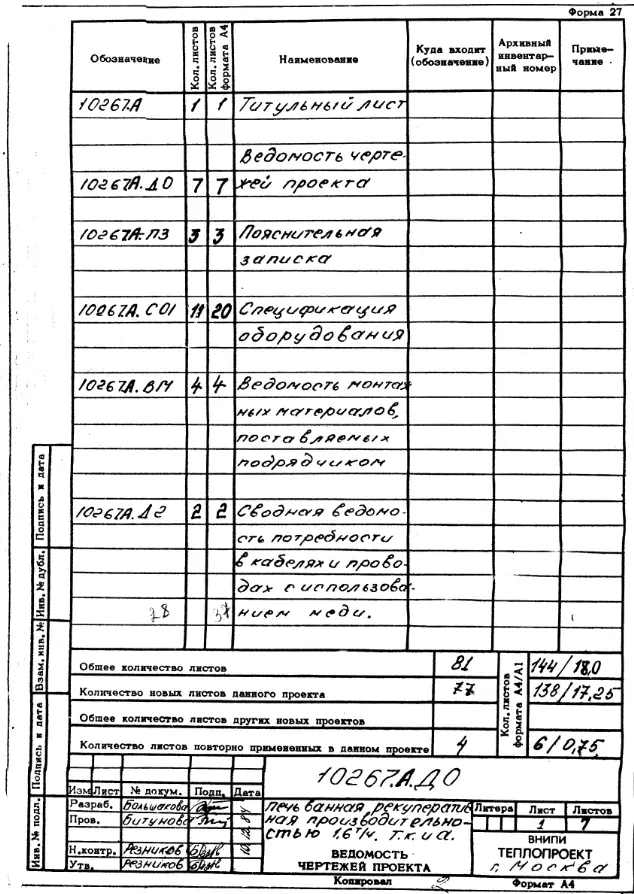 Форма 27
Обозначение Кол. листов Кол. листов формата А4 Наименование Куда входит (обозначение) Архивный инвентарный номер Примечание
10267А 1 1 Титульный лист
Ведомость черте-
10267А.ДО 7 7 жей проекта
10267А-ПЗ 3 3 Пояснительная
записка
10267А.СО1 11 20 Спецификация
оборудования
10267А.ВМ 4 4 Ведомость монтаж
ных материалов,
поставляемых
подрядчиком
10267А.Д2 2 2 Сводная ведомо-
сть потребности
в кабелях и прово-
дах с использова-
78 37 нием меди.
Общее количество листов 81 Кол. листов формата А4/А1 144/18,0
Количество новых листов данного проекта 77 138/17,25
Общее количество листов других новых проектов
Количество листов повторно примененных в данном проекте 4 6/0,75
Подпись и дата
Инв. № дубл.
Взам. инв. №
Подпись и дата
Инв. № подл.
10267.А.ДО
Изм Лист № докум. Подп. Дата
Разраб. Большакова
Пров. Битунова
Н.контр. Резников
Утв. Резников
печь ванная, рекуператив
ная производительно-
стью 1,6 т/ч. т.к. и а.
ВЕДОМОСТЬ
ЧЕРТЕЖЕЙ ПРОЕКТА
Литера Лист Листов
1 7
ВНИПИ
ТЕПЛОПРОЕКТ
г. Москва
Копировал Формат А4